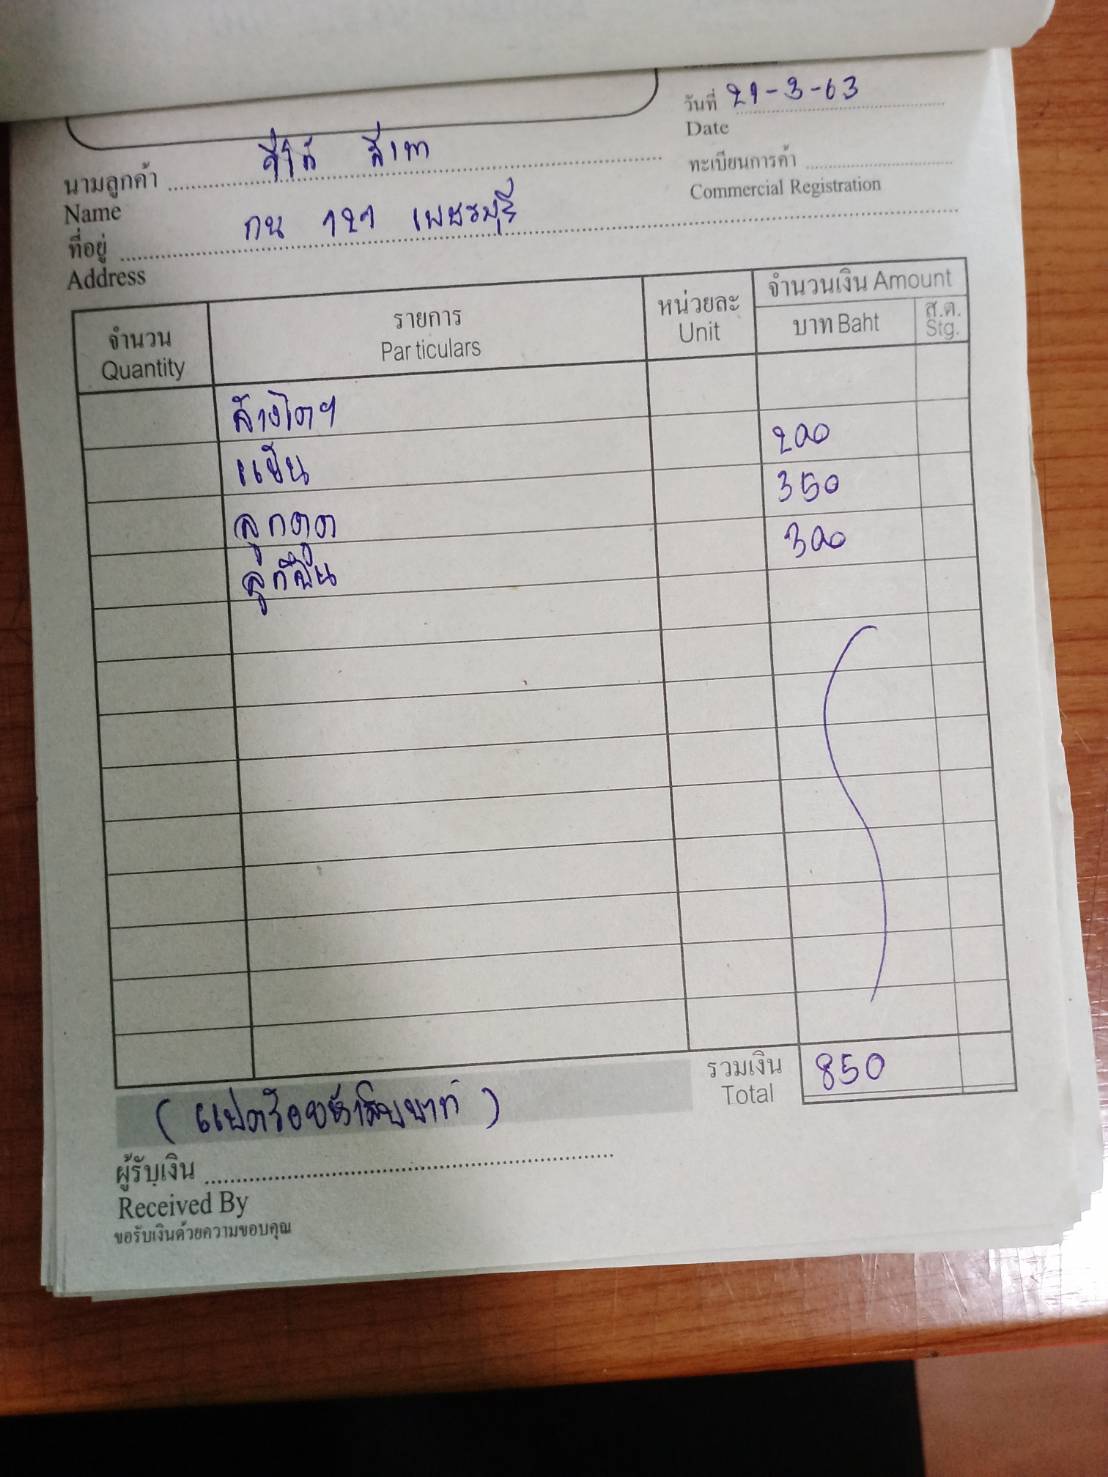 วันที่ 21-3-63
Date
นามลูกค้า อีซูซุ สีเทา
Name
ทะเบียนการค้า
Commercial Registration
ที่อยู่ กน 121 เพชรบุรี
Address
จำนวน รายการ หน่วยละ จำนวนเงิน Amount
Quantity Particulars Unit บาท Baht ส.ต. Stg.
ล้างไดฯ
แปืน 200
ลูกดูด 350
ลูกปืน 300
รวมเงิน 850
Total
(แปดร้อยห้าสิบบาท)
ผู้รับเงิน
Received By
ขอรับเงินด้วยความขอบคุณ